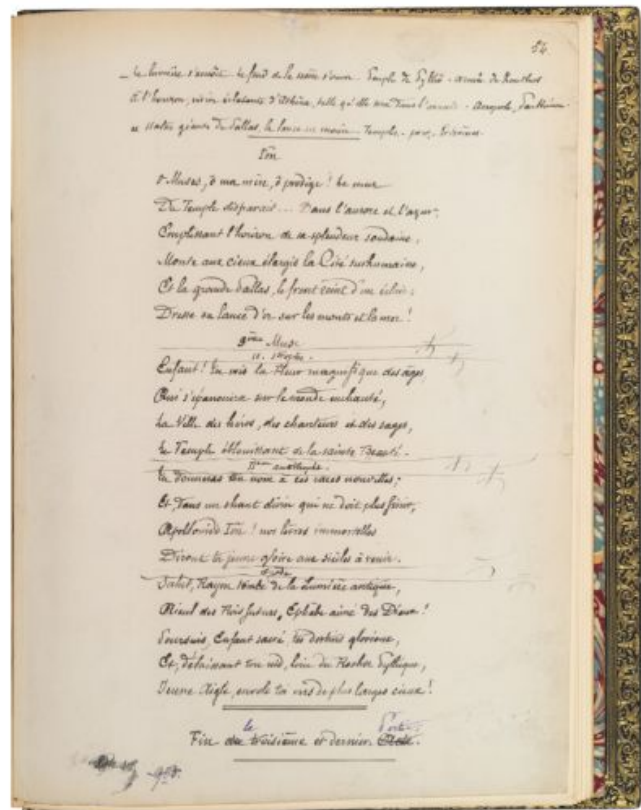 54
_ La lumière s'accroît. Le fond de la scène s'ouvre. Temple de Pythô.
à l'horizon, vision éclatante d'Athènes, telle qu'elle sera dans l'avenir - Acropole, Parthénon
et statue géante de Pallas, la lance en main. Temples
Iôn
Ô Muses, ô ma mère, ô prodige ! Le mur
Du Temple disparait... Dans l'aurore et l'azur,
Emplissant l'horizon de sa splendeur soudaine,
Monte aux cieux élargis la Cité surhumaine,
Et la grande Pallas, le front ceint d'un éclair,
Dresse sa lance d'or sur les monts et la mer !
Muse
Enfant ! tu vois la Fleur magnifique des âges
Qui s'épanouira sur le monde enchanté,
La Ville des héros, des chanteurs et des sages,
Le Temple éblouissant de la sainte Beauté.
IIème antistrophe.
Tu donneras ton nom à ces races nouvelles ;
Et, dans un chant divin qui ne doit plus finir,
Apollonide Iôn ! nos lèvres immortelles
Diront ta jeune gloire aux siècles à venir.
Épode
Salut, Rayon tombé de la Lumière antique,
Aïeul des Rois futurs, Éphèbe aimé des Dieux !
Poursuis, Enfant sacré, tes destins glorieux,
Et, délaissant ton nid, loin du Rocher Pythique,
Jeune Aigle, envole toi vers de plus larges cieux !
le Partie
Fin du troisième et dernier